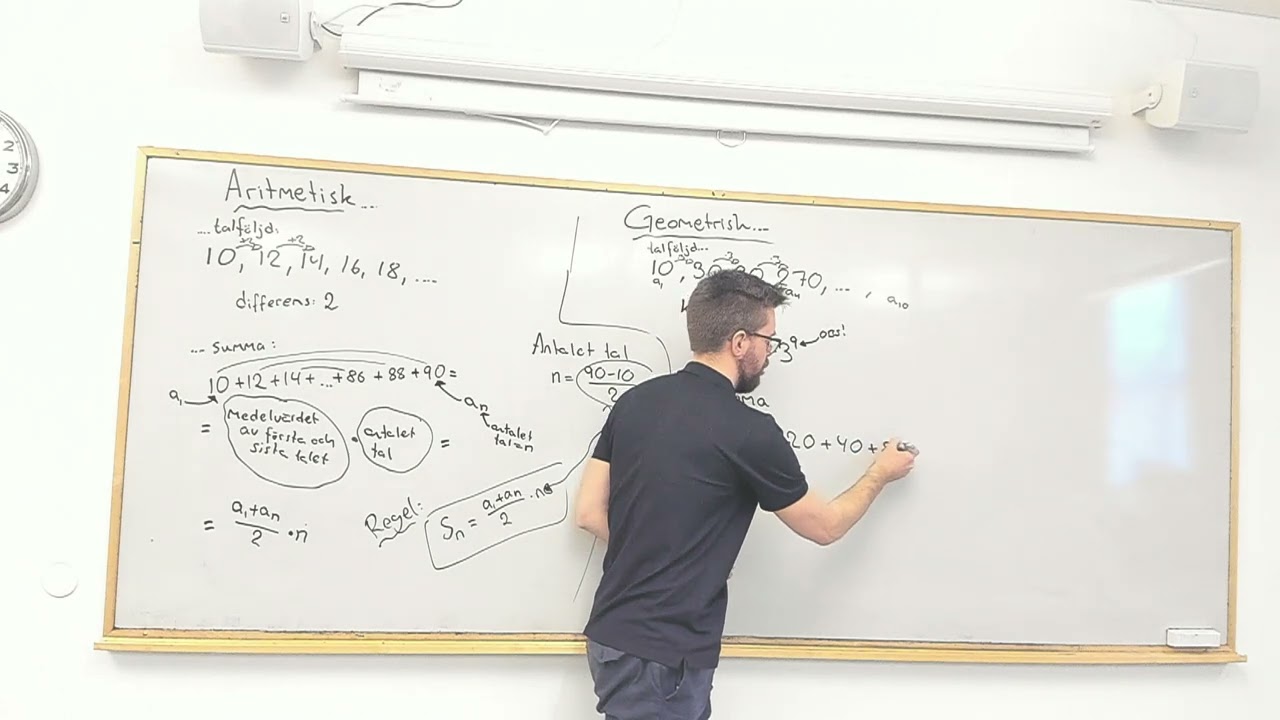 2
3
4
Aritmetisk...
....talföljd:
+2 +2
10, 12, 14, 16, 18, ....
differens: 2
... summa:
10+12+14+...+86+88+90=
a₁
an
antalet
tal=n
= Medelvärdet av första och sista talet · antalet tal =
= a₁+an/2 · n
Regel:
Sn = a₁+an/2 · n
Antalet tal
n= 90-10/2
Geometrish...
talföljd...
10, 270, ... , a₁₀
a₁
3⁹ obs!
20+40+